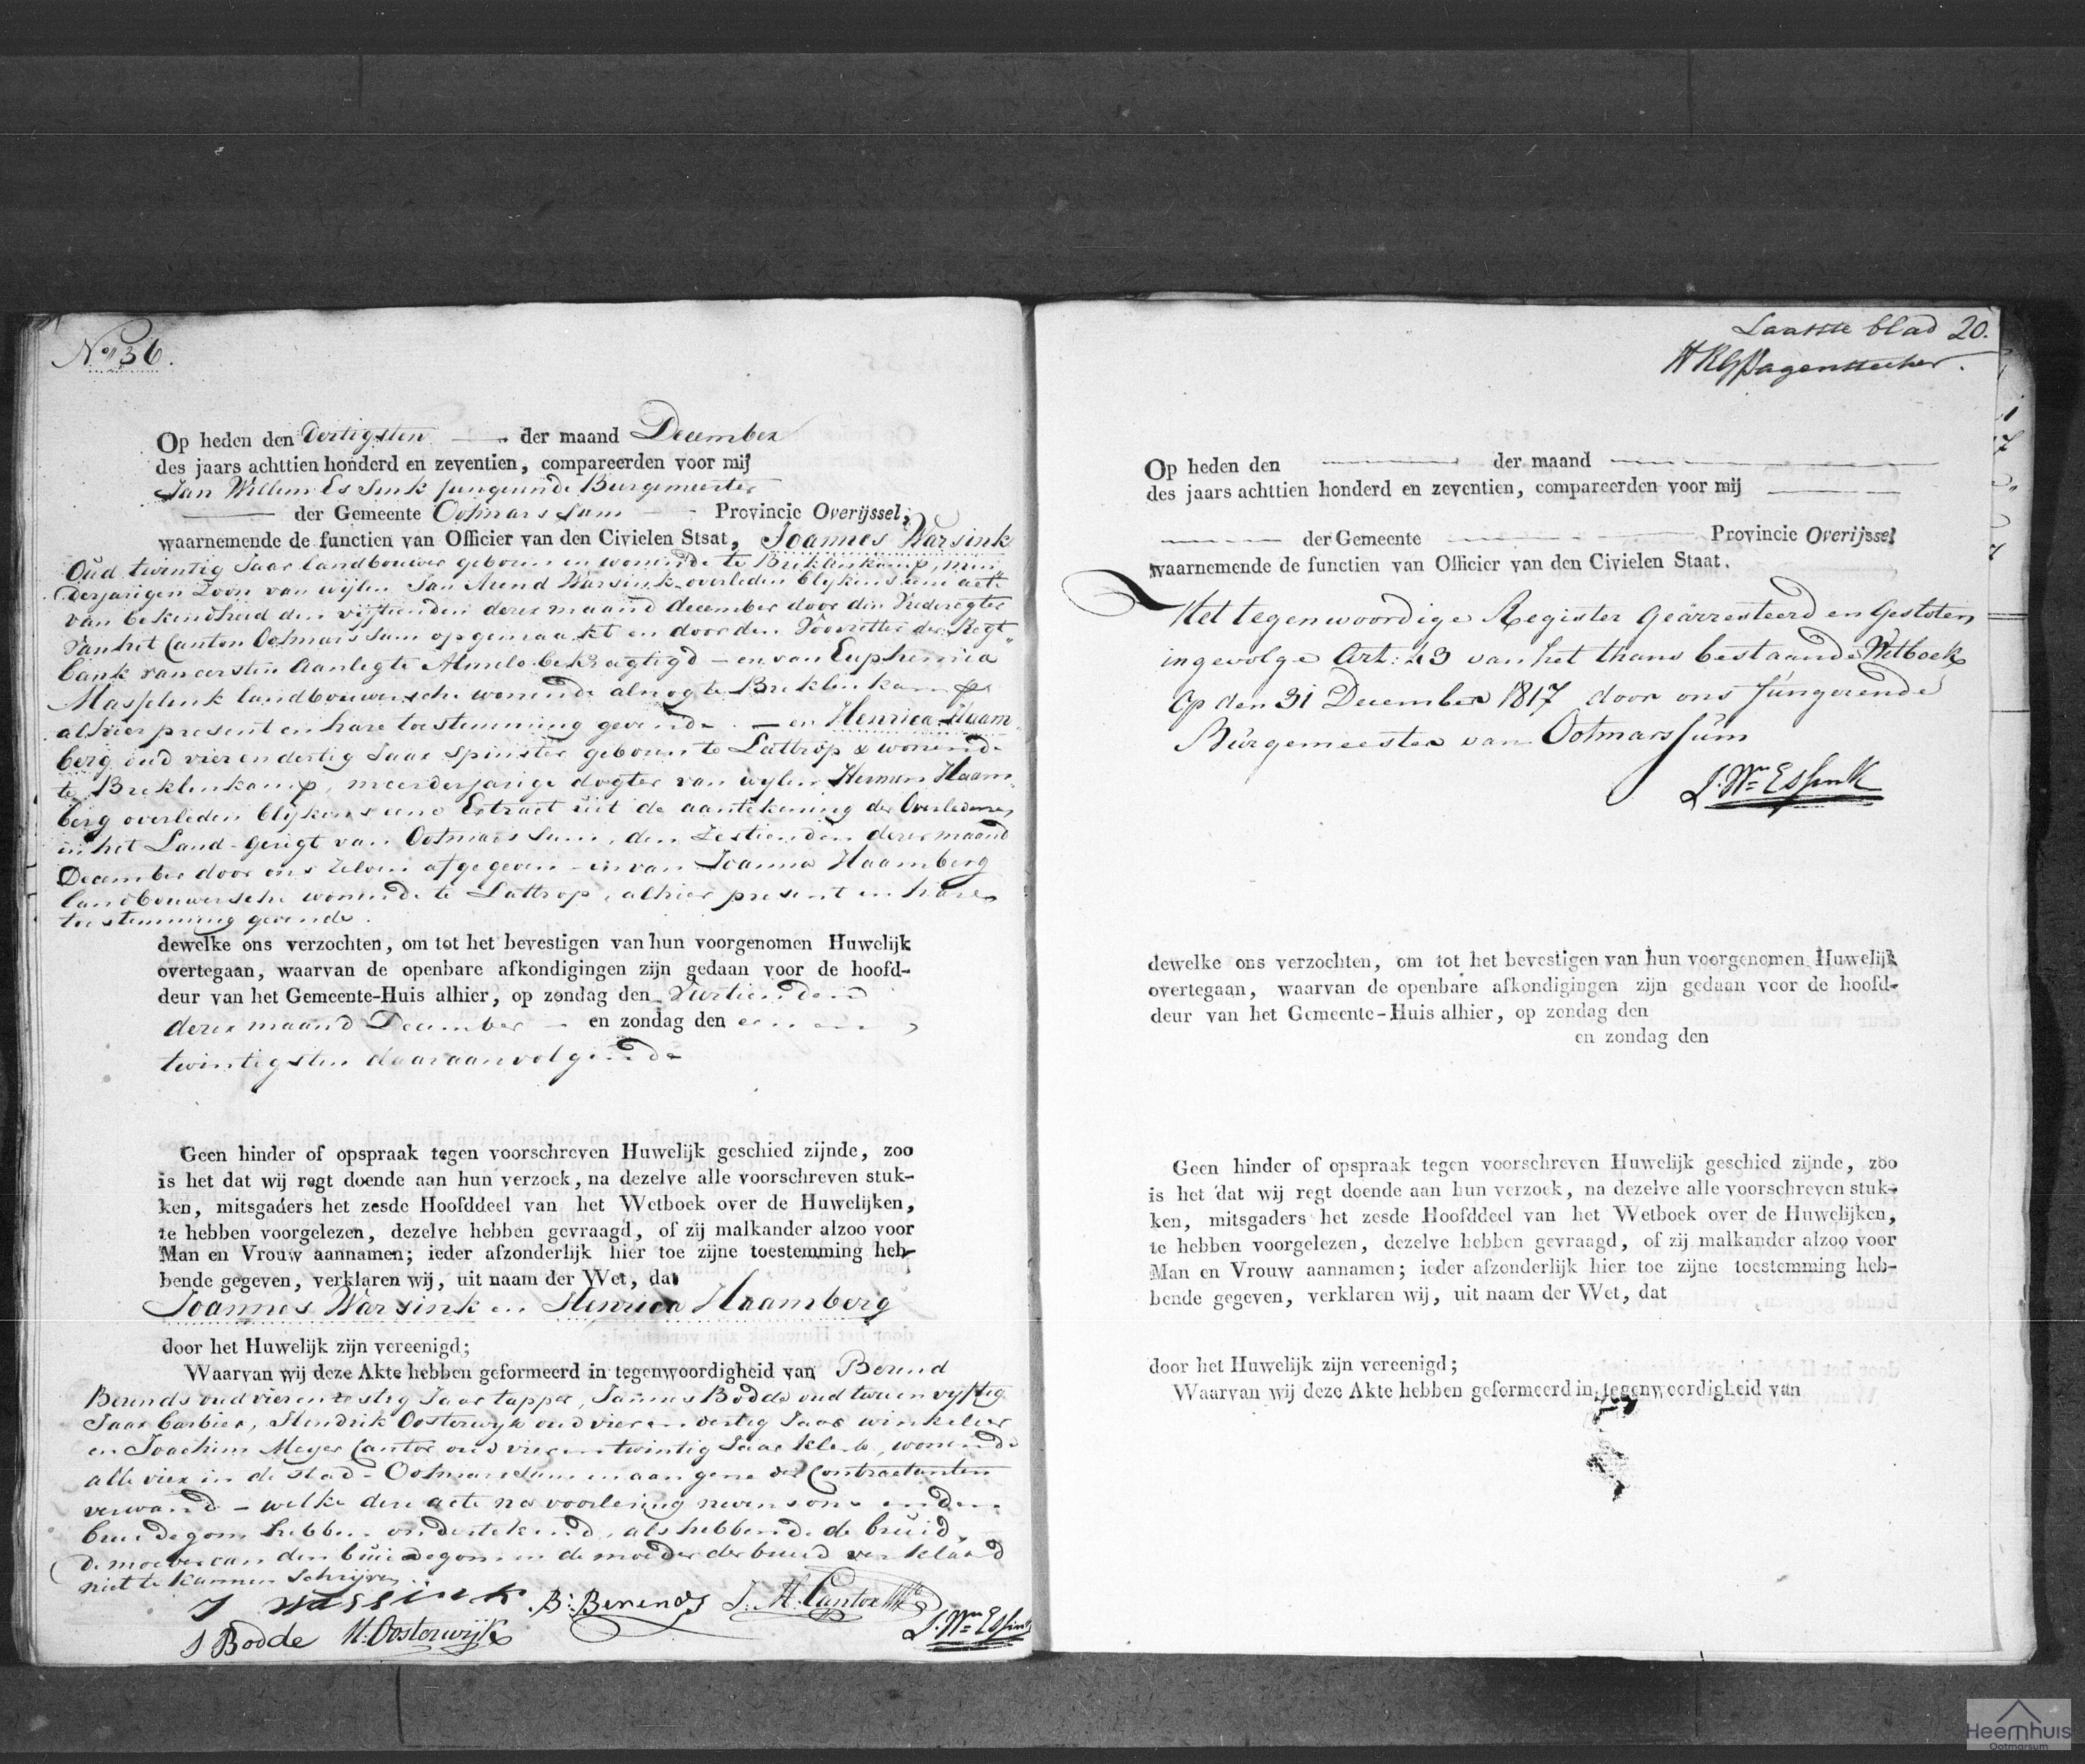 No 36.
Op heden den Dertigsten der maand December
des jaars achttien honderd en zeventien, compareerden voor mij
Jan Willem Essink fungerende Burgemeester
der Gemeente Ootmarssum Provincie Overijssel,
waarnemende de functien van Officier van den Civielen Stsat, Joannes Warsink
Oud twintig Jaar landbouwer geboren en wonende te Breklenkamp, min
derjarigen Zoon van wijlen Jan Arend Warsink overleden blijkens eene acte
van bekendheid den vijftienden dezer maand december door den Vrederegter
van het Canton Ootmarssum opgemaakt en door den Voorzitter der Regt
bank van eersten Aanleg te Almelo bekragtigd – en van Euphemia
Masselink landbouwersche wonende alnog te Breklenkamp
alhier present en hare toestemming gevende. – en Henrica Haam
berg oud vier en dertig Jaar Spinster geboren te Lattrop & wonende
te Breklenkamp, meerderjarige dogter van wijlen Herman Haam
berg overleden blijkens eene Extract uit de aantekening der Overledenen
in het Land-Gerigt van Ootmarssum, den Zestienden dezer maand
December door ons zelven afgegeven – en van Joanna Haamberg
landbouwersche wonende te Lattrop, alhier present en hare
toestemming gevende.
dewelke ons verzochten, om tot het bevestigen van hun voorgenomen Huwelijk
overtegaan, waarvan de openbare afkondigingen zijn gedaan voor de hoofd-
deur van het Gemeente-Huis alhier, op zondag den Veertienden
dezer maand December – en zondag den een en
twintigsten daaraanvolgende
Geen hinder of opspraak tegen voorschreven Huwelijk geschied zijnde, zoo
is het dat wij regt doende aan hun verzoek, na dezelve alle voorschreven stuk-
ken, mitsgaders het zesde Hoofddeel van het Wetboek over de Huwelijken,
te hebben voorgelezen, dezelve hebben gevraagd, of zij malkander alzoo voor
Man en Vrouw aannamen; ieder afzonderlijk hier toe zijne toestemming heb-
bende gegeven, verklaren wij, uit naam der Wet, dat
Joannes Warsink en Henrica Haamberg
door het Huwelijk zijn vereenigd;
Waarvan wij deze Akte hebben geformeerd in tegenwoordigheid van Berend
Berends oud vier en zestig Jaar tapper, Jannes Bodde oud twee en vyftig
Jaar barbier, Hendrik Oosterwyk oud vier en dertig Jaar winkelier
en Joachim Meyer Cantor oud vier en twintig Jaar klerk, wonende
alle vier in de stad – Ootmarssum en aan gene der Contractanten
verwand – welke deze acte na voorlezing nevens ons en den
bruidegom hebben ondertekend, als hebbende de bruid,
de moeder van den bruidegom en de moeder der bruid verklaard
niet te kunnen Schrijven.
J Warsink B: Berends J. M. Cantor
J Bodde H. Oosterwijk J. Wm Essink
Laatste blad 20.
HRGPagenstecher.
Op heden den der maand
des jaars achttien honderd en zeventien, compareerden voor mij
der Gemeente Provincie Overijssel
waarnemende de functien van Officier van den Civielen Staat.
Het tegenwoordige Register Geärresteerd en Gesloten
ingevolge Art: 43 van het thans bestaande Wetboek
Op den 31 December 1817 door ons fungerende
Bürgemeester van Ootmarssum
J. Wm Essink
dewelke ons verzochten, om tot het bevestigen van hun voorgenomen Huwelijk
overtegaan, waarvan de openbare afkondigingen zijn gedaan voor de hoofd-
deur van het Gemeente-Huis alhier, op zondag den
en zondag den
Geen hinder of opspraak tegen voorschreven Huwelijk geschied zijnde, zoo
is het dat wij regt doende aan hun verzoek, na dezelve alle voorschreven stuk-
ken, mitsgaders het zesde Hoofddeel van het Wetboek over de Huwelijken,
te hebben voorgelezen, dezelve hebben gevraagd, of zij malkander alzoo voor
Man en Vrouw aannamen; ieder afzonderlijk hier toe zijne toestemming heb-
bende gegeven, verklaren wij, uit naam der Wet, dat
door het Huwelijk zijn vereenigd;
Waarvan wij deze Akte hebben geformeerd in tegenwoordigheid van
Heemhuis
Ootmarsum